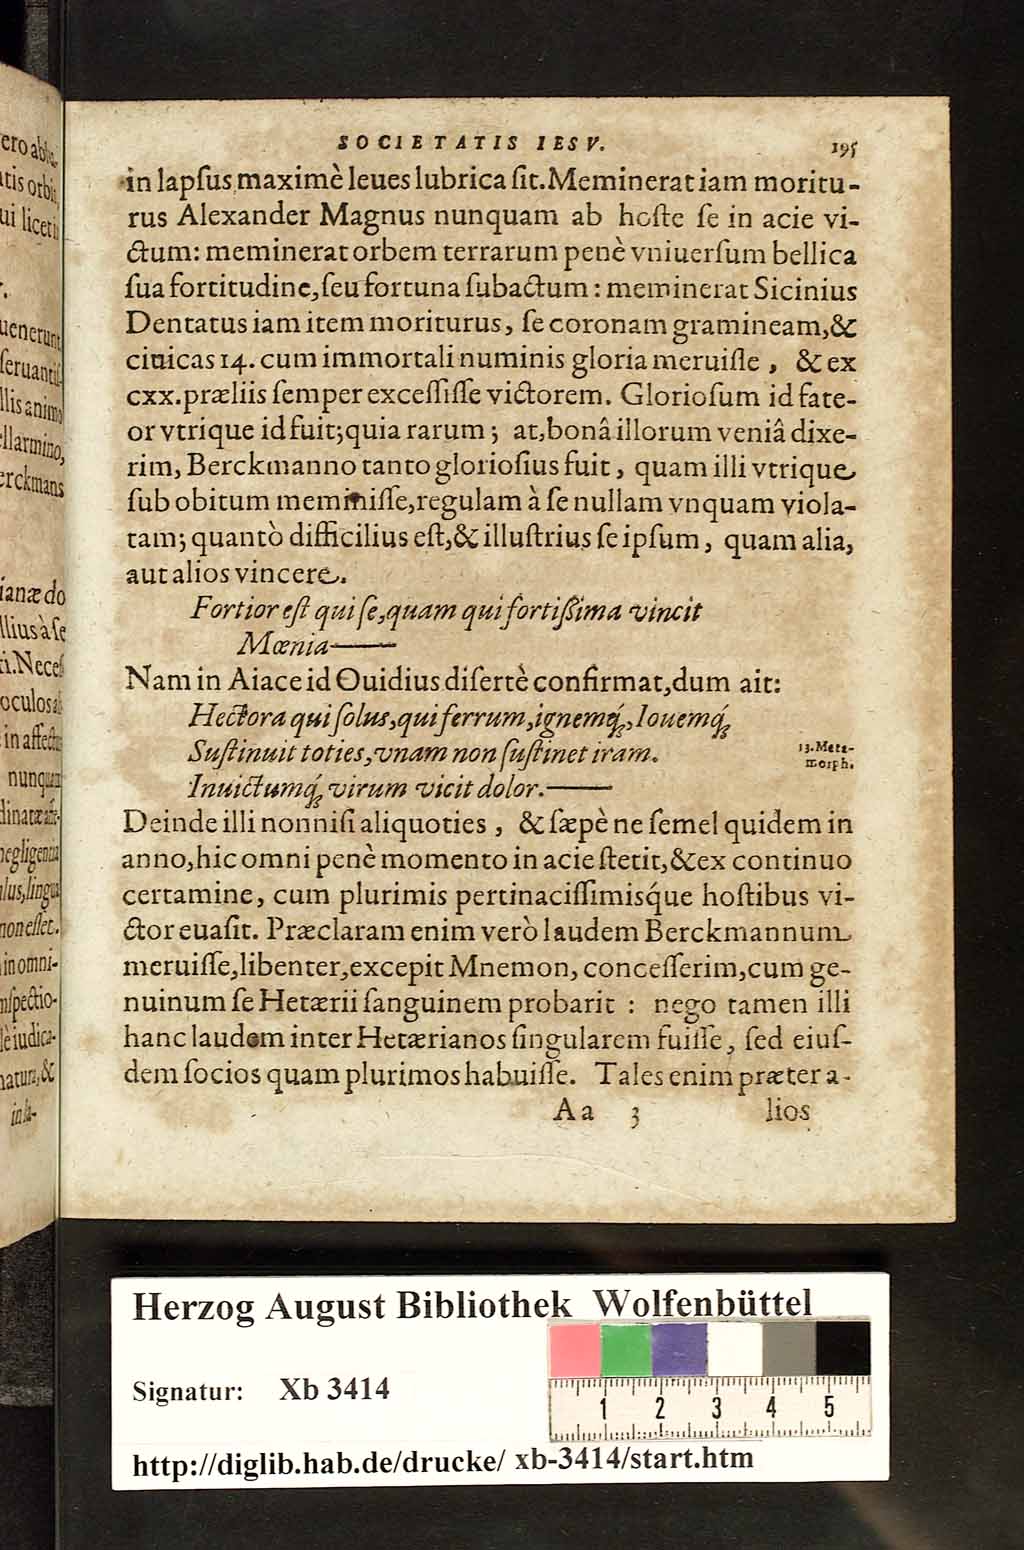 SOCIETATIS IESV. 195
in lapſus maximè leues lubrica ſit. Meminerat iam moritu-
rus Alexander Magnus nunquam ab hoſte ſe in acie vi-
ctum: meminerat orbem terrarum penè vniuerſum bellica
ſua fortitudine, ſeu fortuna ſubactum: meminerat Sicinius
Dentatus iam item moriturus, ſe coronam gramineam, &
ciuicas 14. cum immortali numinis gloria meruiſſe, & ex
cxx. præliis ſemper exceſſiſſe victorem. Glorioſum id fate-
or vtrique id fuit; quia rarum; at, bonâ illorum veniâ dixe-
rim, Berckmanno tanto glorioſius fuit, quam illi vtrique
ſub obitum meminiſſe, regulam à ſe nullam vnquam viola-
tam; quantò difficilius eſt, & illuſtrius ſe ipſum, quam alia,
aut alios vincere.
Fortior eſt qui ſe, quam qui fortiſſima vincit
Mœnia——
Nam in Aiace id Ouidius diſertè confirmat, dum ait:
Hectora qui ſolus, qui ferrum, ignemq́;, Iouemq́;
Suſtinuit toties, vnam non ſuſtinet iram.
13. Meta-
morph.
Inuictumq́; virum vicit dolor.——
Deinde illi nonniſi aliquoties, & ſæpè ne ſemel quidem in
anno, hic omni penè momento in acie ſtetit, & ex continuo
certamine, cum plurimis pertinaciſſimisq́ue hoſtibus vi-
ctor euaſit. Præclaram enim verò laudem Berckmannum
meruiſſe, libenter, excepit Mnemon, conceſſerim, cum ge-
nuinum ſe Hetærii ſanguinem probarit : nego tamen illi
hanc laudem inter Hetærianos ſingularem fuiſſe, ſed eiuſ-
dem ſocios quam plurimos habuiſſe. Tales enim præter a-
Aa 3 lios
Herzog August Bibliothek Wolfenbüttel
Signatur: Xb 3414
1 2 3 4 5
http://diglib.hab.de/drucke/ xb-3414/start.htm